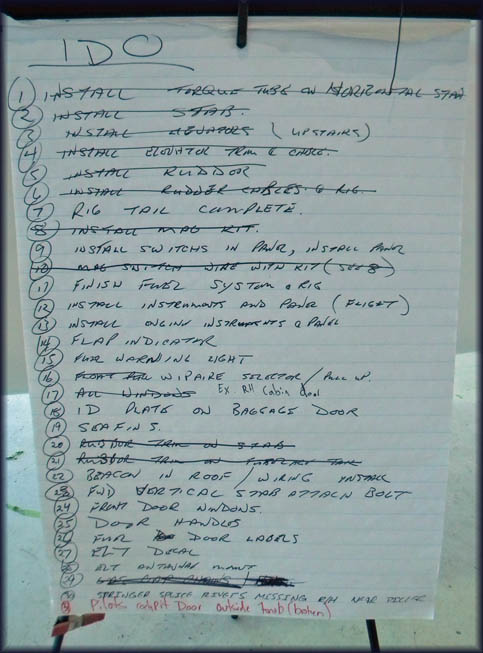 IDO
1 INSTALL TORQUE TUBE ON HORIZONTAL STAB
2 INSTALL STAB.
3 INSTALL ELEVATORS (UPSTAIRS)
4 INSTALL ELEVATOR TRIM & CABLE.
5 INSTALL RUDDOR
6 INSTALL RUDDER CABLES & RIG.
7 RIG TAIL COMPLETE.
8 INSTALL MAG KIT.
9 INSTALL SWITCHS IN PANEL, INSTALL PANEL
10 MAG SWITCH WIRE WITH KIT (SEE 8)
11 FINISH FUEL SYSTEM & RIG
12 INSTALL INSTRUMENTS AND PANEL (FLIGHT)
13 INSTALL ENGINE INSTRUMENTS & PANEL
14 FLAP INDICATOR
15 FUEL WARNING LIGHT
16 FLOAT WIPAIRE SELECTOR / PULL UP.
17 ALL WINDOWS Ex. RH Cabin door
18 ID PLATE ON BAGGAGE DOOR
19 SEAFINS.
20 RUDDOR TRIM ON STAB
21 RUDDOR TRIM ON
22 BEACON IN ROOF / WIRING INSTALL
23 FWD VERTICAL STAB ATTACH BOLT
24 FRONT DOOR WINDOWS.
25 DOOR HANDLES
26 FUEL DOOR LABELS
27 ELT DECAL
28 ELT ANTENNA MOUNT
29
30 STRINGER SPLICE RIVETS MISSING R/H NEAR
31 Pilots cockpit Door outside knob (broken)